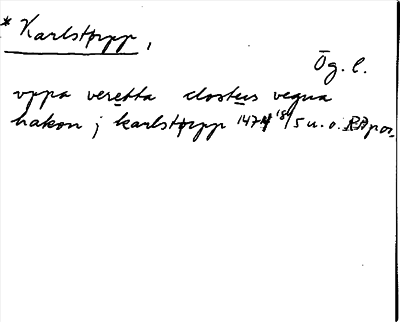 * Karlstorpp,
Ög. l.
vppa veretta closters vegna
hakon j karlstorpp 1474 18/5 u. o. RAp or.